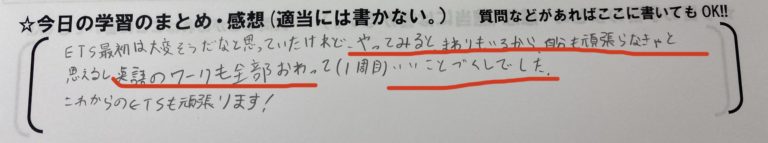 ☆今日の学習のまとめ・感想(適当には書かない。) 質問などがあればここに書いてもOK!!
ETS最初は大変そうだなと思っていたけれど、やってみるとまわりもいるから、自分も頑張らなきゃと
思えるし英語のワークも全部おわって(1周目)いいことづくしでした。
これからのETSも頑張ります!